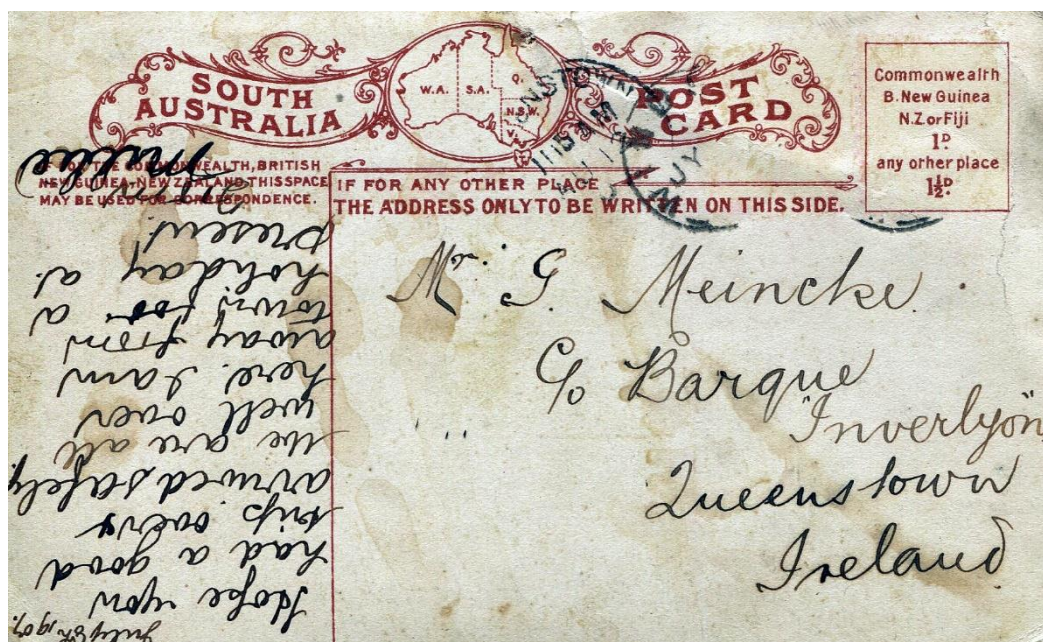 SOUTH
AUSTRALIA
W.A.
S.A.
Q.
N.S.W.
V.
POST
CARD
Commonwealth
B. New Guinea
N.Z or Fiji
1D
any other place
1½D.
THE COMMONWEALTH, BRITISH
NEW GUINEA, NEW ZEALAND, THIS SPACE
MAY BE USED FOR CORRESPONDENCE.
IF FOR ANY OTHER PLACE
THE ADDRESS ONLY TO BE WRITTEN ON THIS SIDE.
Mr. G. Meincke
C/o Barque
"Inverlyon"
Queenstown
Ireland
July 8th, 1907.
Hope you
had a good
trip over &
arrived safely.
We are all
well over
here. I am
away from
town for a
holiday at
present.